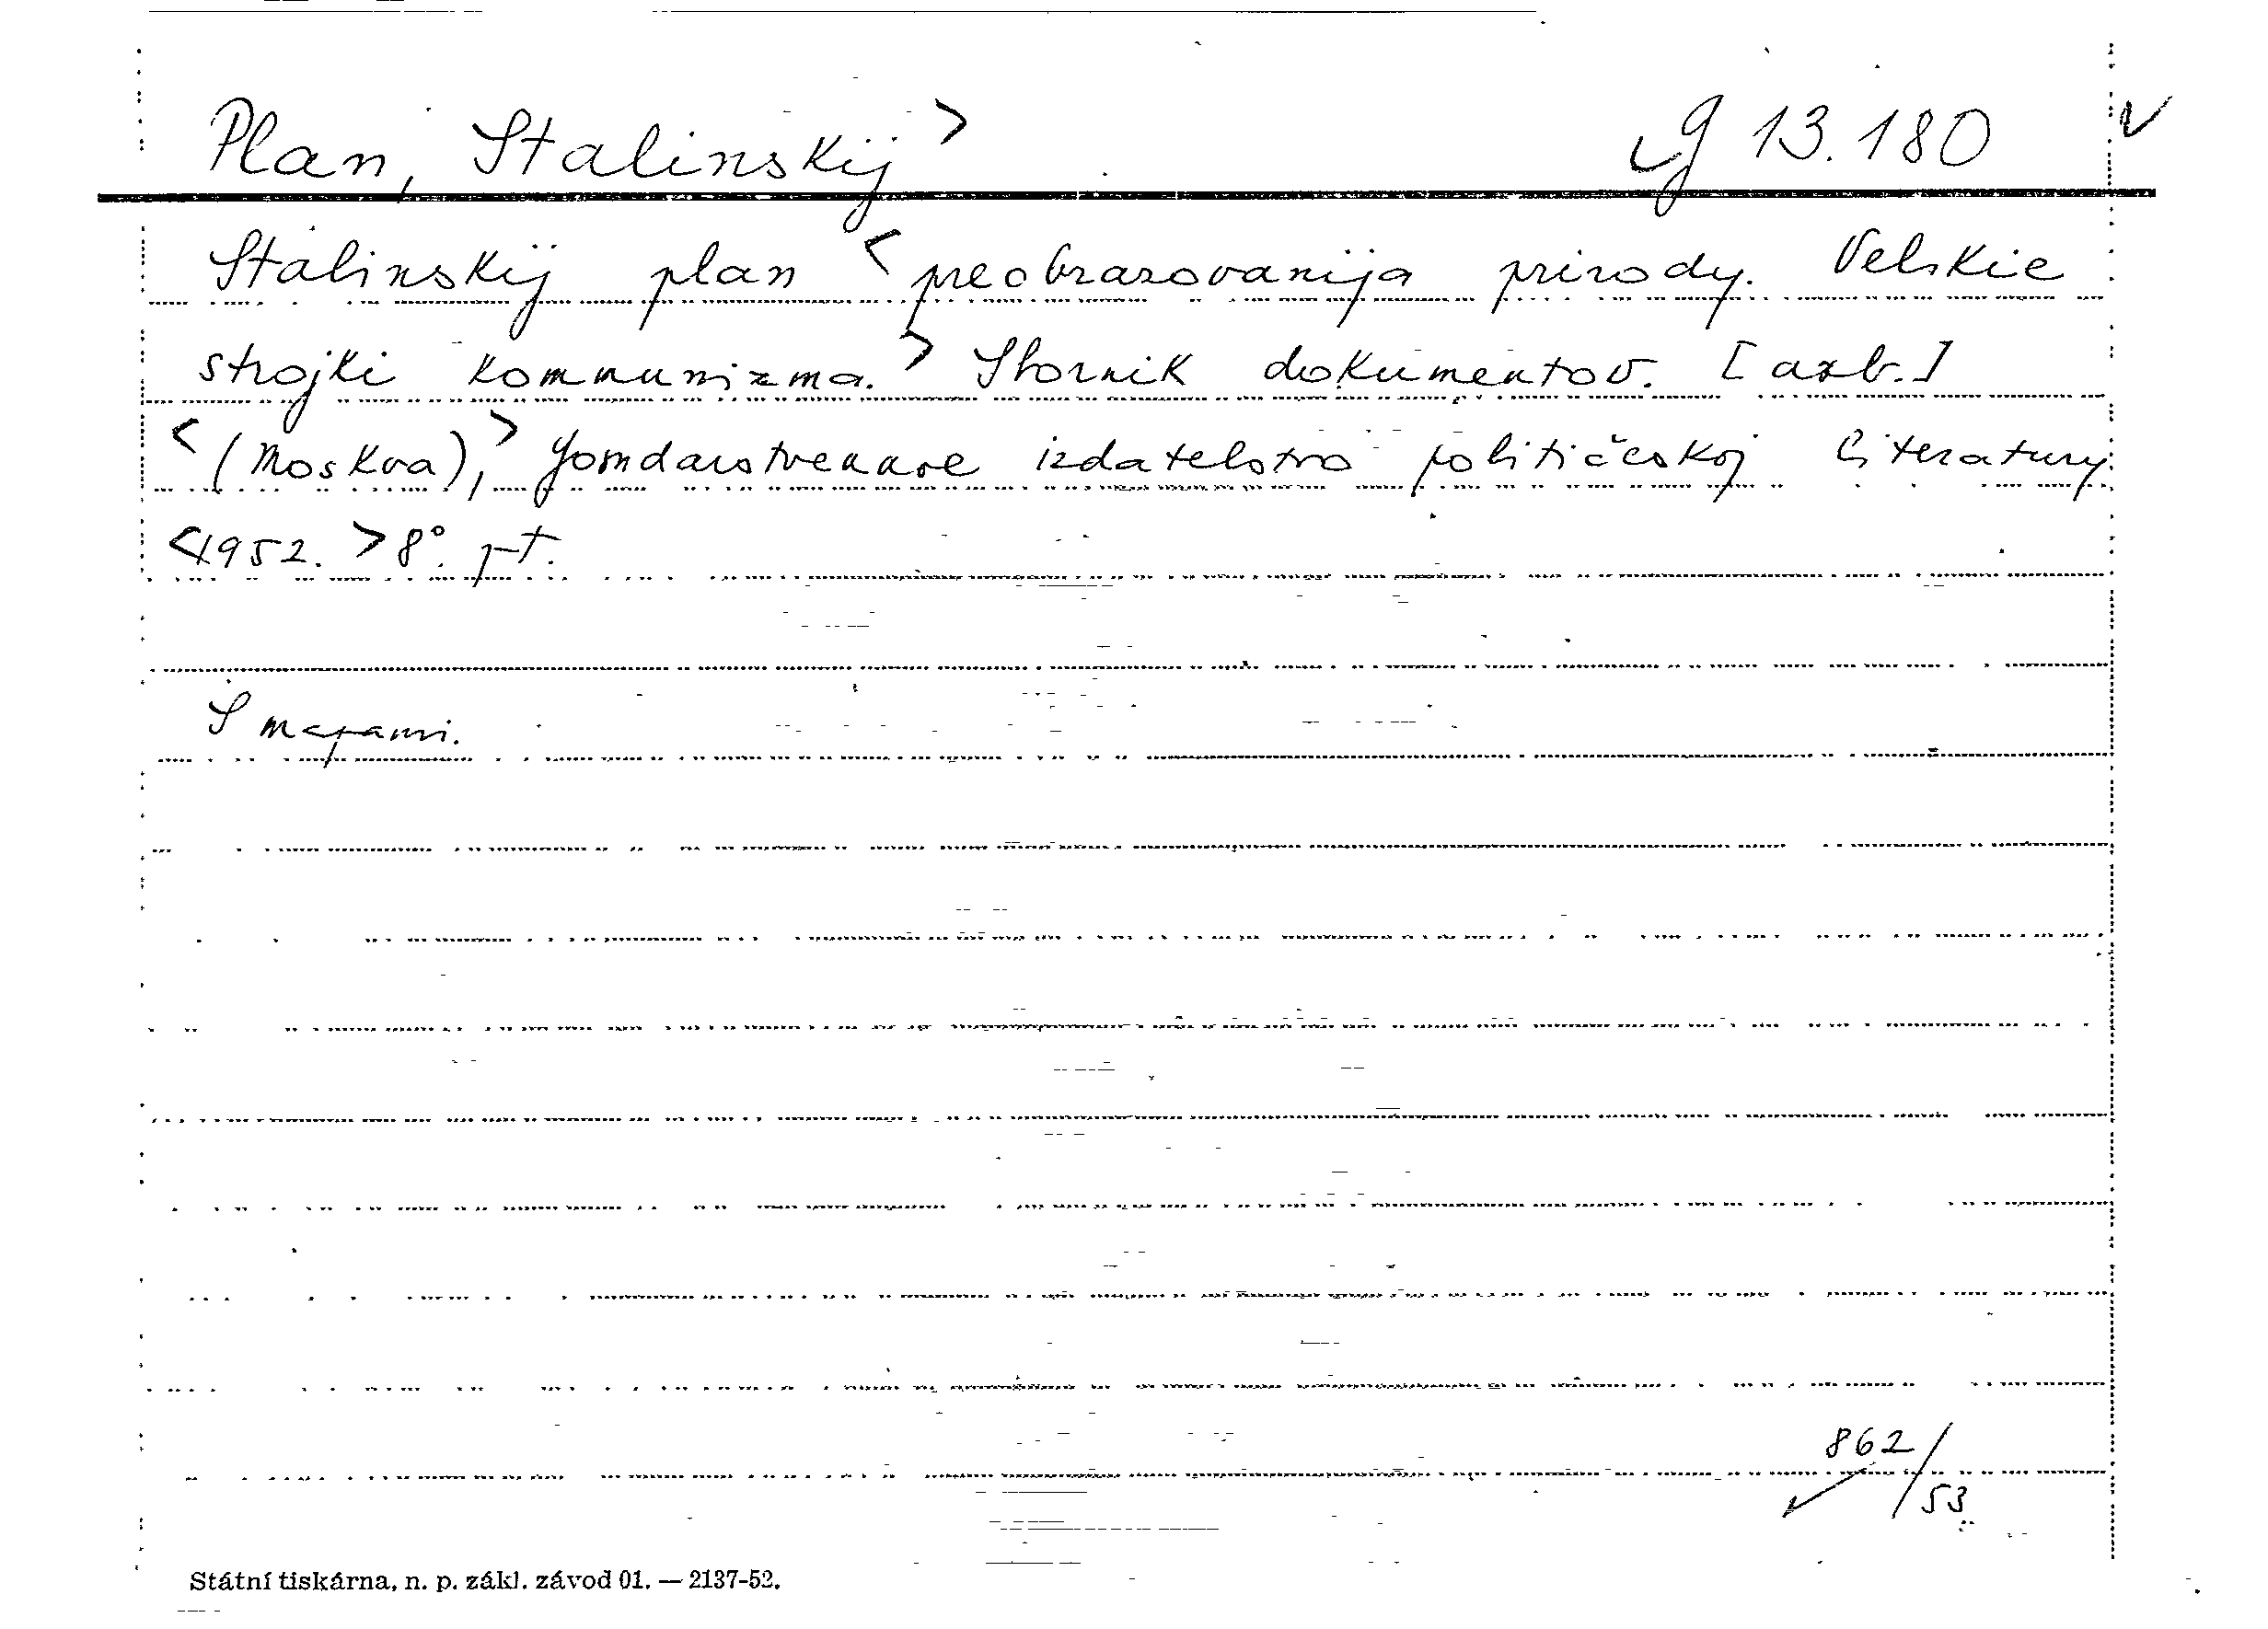 Plan, Stalinskij > g 13.180 v
Stalinskij plan < preobrazovanija prirody. Velikie
strojki kommunizma. > Sbornik dokumentov. [azb.]
< (Moskva), > Gosudarstvennoe izdatelstvo političeskoj literatury
<1952. > 8°. pt.
S mapami.
862/
53
Státní tiskárna, n. p. zákl. závod 01. — 2137-52.